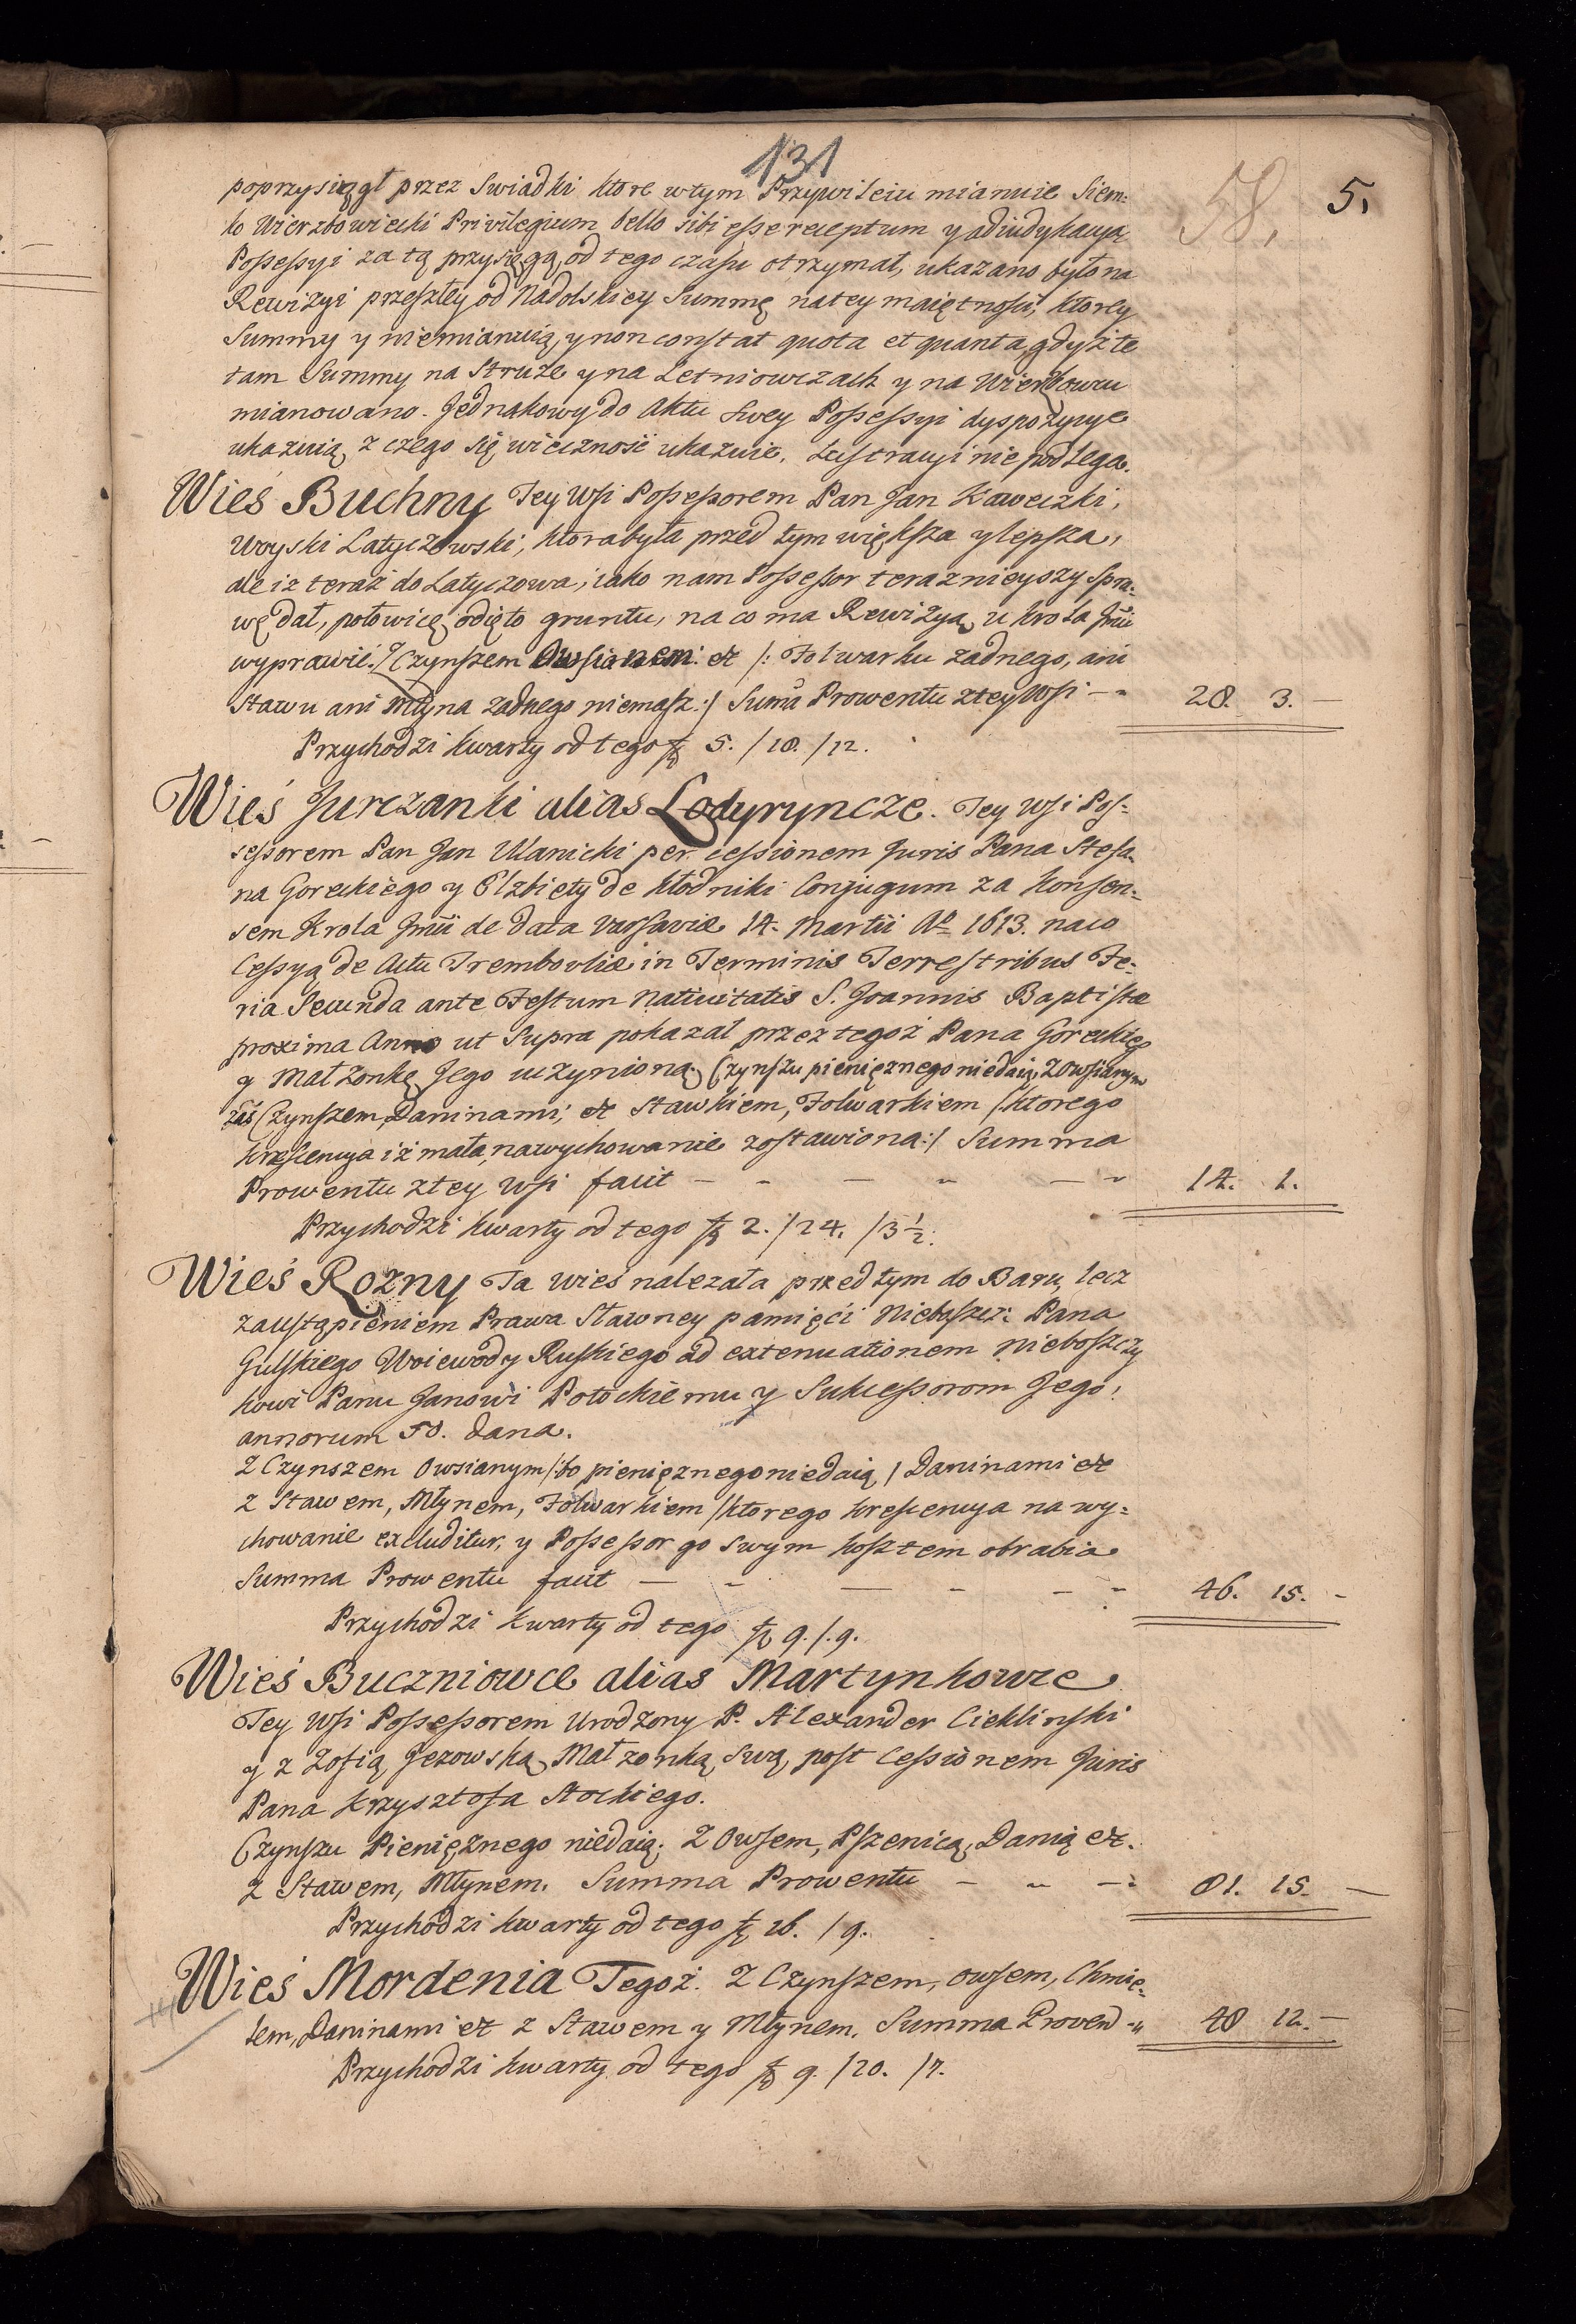 131
58.
5.
poprzysiągł przez Swiadki ktore wtym Przywileiu mianuie Siem:
ko Wierzbowiecki Privilegium bello sibi esse receptum y adiudykacyą
Possessyi za tą przysięgą, od tego czasu otrzymał, ukazano było na
Rewizyi przeszłey od Nadolskiey Summę na tey maiętnosci, ktorey
Summy y niemianuią, y non constat quota et quanta, gdyż te
tam Summy na Struze y na Letniowczach y na Wierzbowcu
mianowano. Jednakowy do Aktu swey Possessyi dyspozycye
ukazuią, z czego się wiecznosć ukazuie, Lustracyi nie podlega.
Wieś Buchny Tey Wsi Possessorem Pan Jan Kaweczki,
Woyski Latyczowski, ktora była przed tym większa y lepsza,
ale iz teraz do Latyczowa, iako nam Possessor terazniejszy spra:
wę dał, połowicę odięto gruntu, na co ma Rewizyą u Krola Jmći
wyprawić. Z Czynszem Owsianem: et /: Folwarku zadnego, ani
Stawu ani Młyna zadnego niemasz :/ Suma Prowentu z tey Wsi — 28. 3. —
Przychodzi kwarty od tego fl 5. / 18. / 12.
Wieś Jurczanki alias Lodyryncze. Tey Wsi Pos-
sessorem Pan Jan Ulanicki per cessionem Juris Pana Stefa-
na Goreckiego y Elzbiety de Kłodniki Conjugum za konsen-
sem Krola Jmći de data Varsavie 14. Martii Aº 1613. na co
Cessyą de Actu Trembovlie in Terminis Terrestribus Fe-
ria Secunda ante Festum Nativitatis S. Joannis Baptistae
proxima Anno ut Supra pokazał przez tegoż Pana Goreckiego
y Małzonkę Jego uczynioną. Czynszu pieniężnego niedaią, Z Owsianym
zaś Czynszem, Daninami, et Stawkiem, Folwarkiem /: ktorego
krescencya iż mała, na wychowanie zostawiona :/ Summa
Prowentu z tey Wsi facit — — — 14. 1.
Przychodzi kwarty od tego fl 2. / 24. / 3 ½.
Wieś Rozny Ta wieś nalezała przed tym do Baru, lecz
za ustąpieniem Prawa Sławney pamięci Nieboszcz: Pana
Gulskiego Woiewody Ruskiego ad extenuationem Nieboszczy
kowi Panu Janowi Potockiemu y Sukcessorom Jego,
annorum 50. dana.
Z Czynszem Owsianym /: bo pieniężnego niedaią / Daninami et
z Stawem, Młynem, Folwarkiem /: ktorego krescencya na wy-
chowanie excluditur, y Possessor go swym kosztem obrabia
Summa Prowentu facit — — — 46. 15. -
Przychodzi kwarty od tego fl 9. /. 9.
Wieś Buczniowce alias Martynkowce
Tey Wsi Possessorem Urodzony P. Alexander Cieklinski
y z Zofią Jezowską Małzonką swą, post Cessionem Juris
Pana Krzysztofa Stockiego.
Czynszu Pieniężnego niedaią; Z Owsem, Pszenicą, Danią et.
z Stawem, Młynem. Summa Prowentu — — 81. 15. —
Przychodzi kwarty od tego fl 16. / 9.
Wieś Mordenia Tegoż. Z Czynszem, owsem, Chmie-
lem, Daninami et z Stawem y Młynem. Summa Provent — 48 12. —
Przychodzi kwarty od tego fl 9. / 20. / 7.